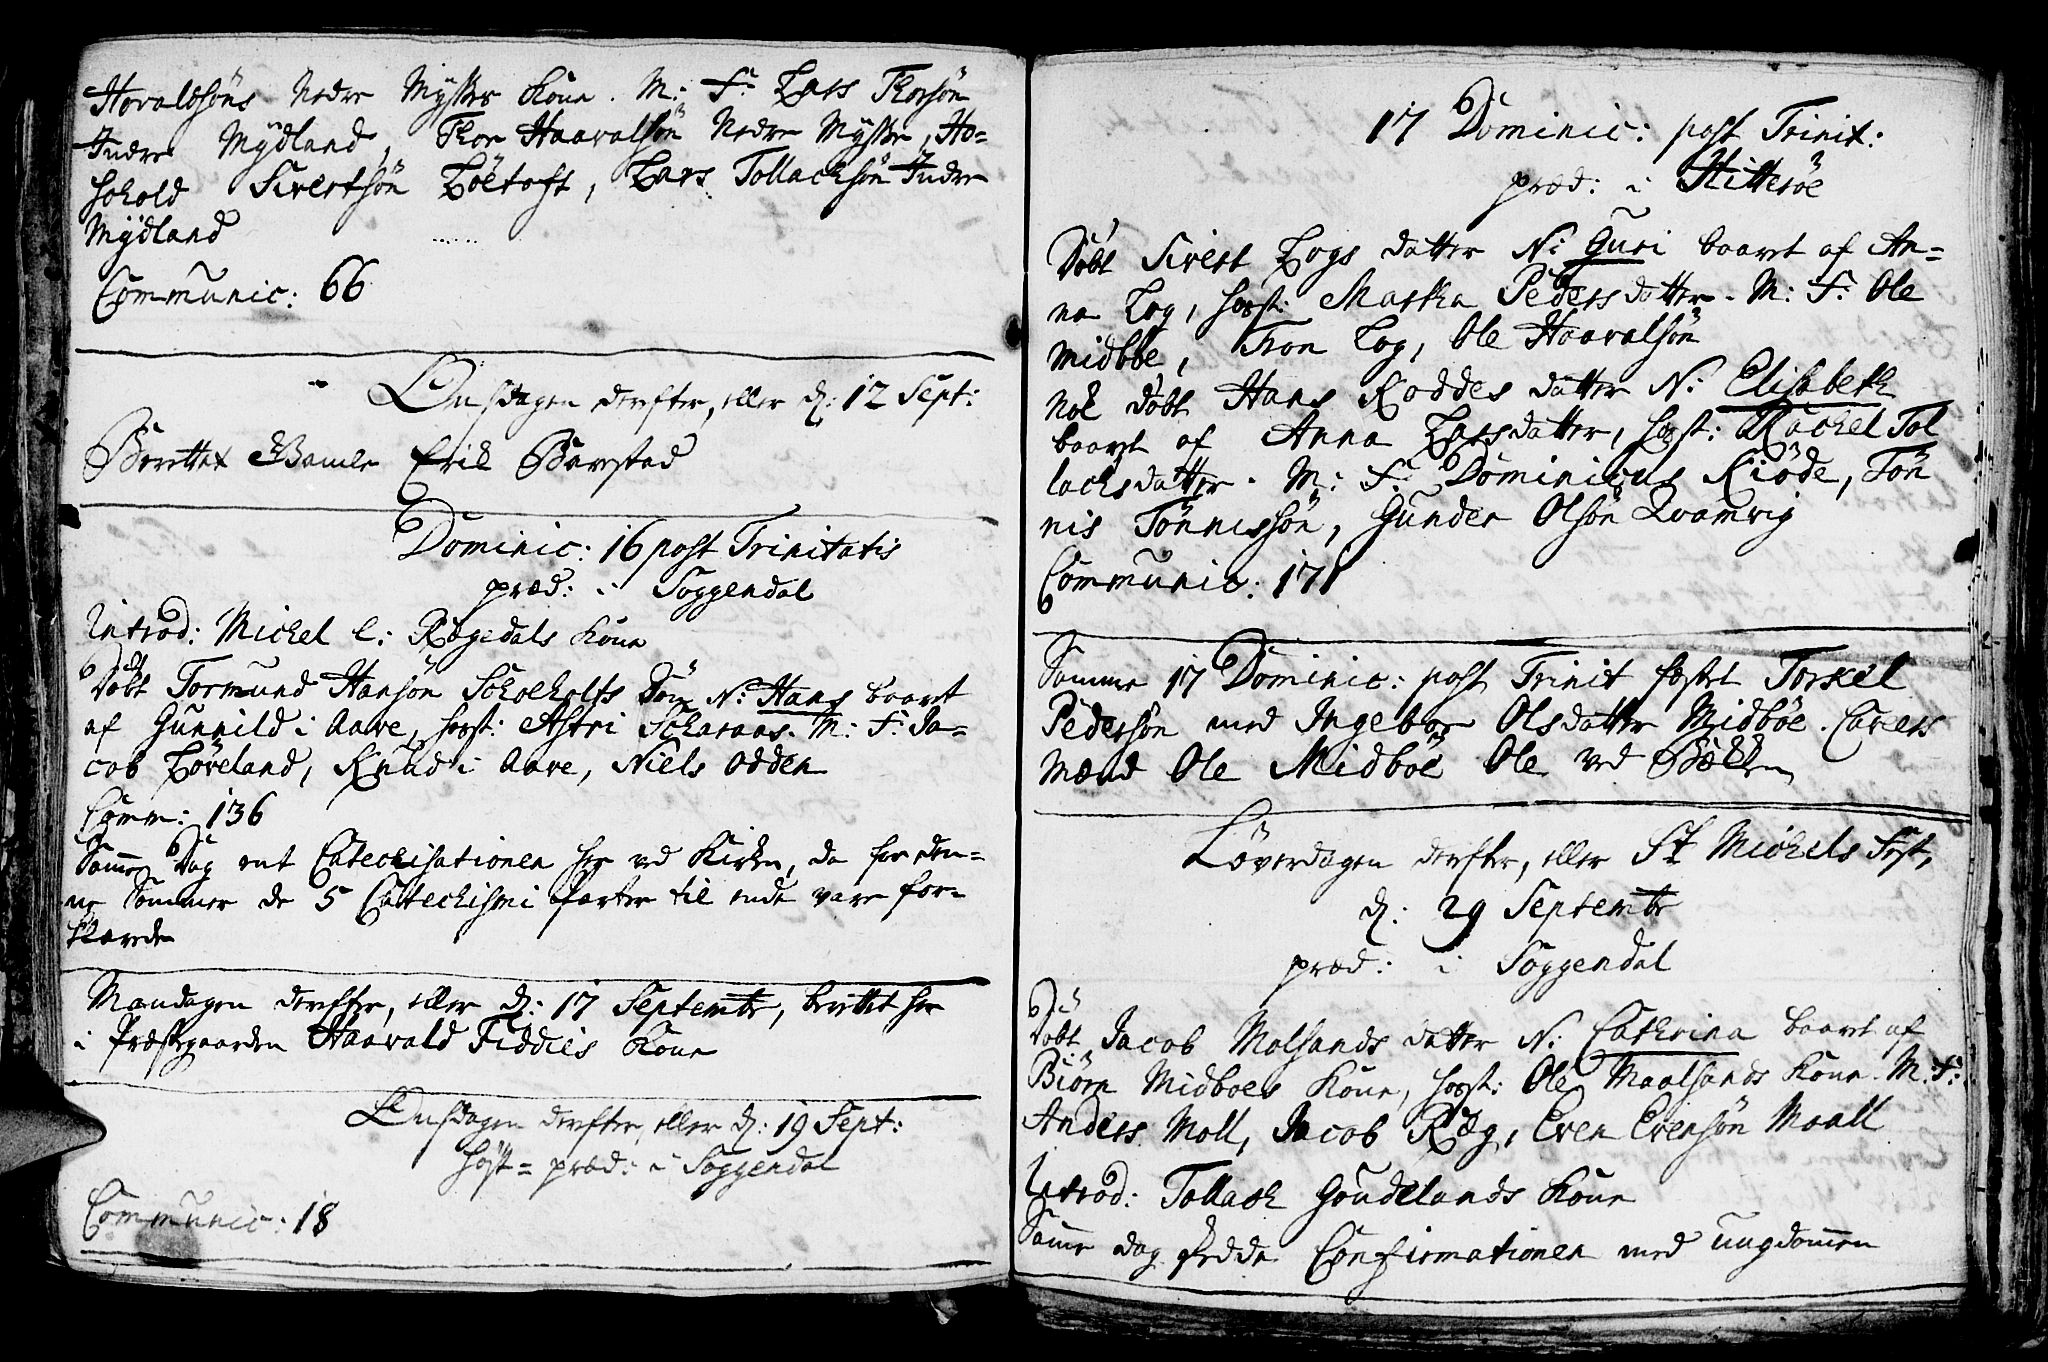 Horaldsöns Nedre Mysse Kone. M: F: Lars Thorsön
Indre Mydland, Thor Haavalsön Nedre Mysse, Ho-
skold Sivertsön Löetoft, Lars Tollachsön Indre
Mydland
Communic: 66
Onsdagen derefter, eller d: 12 Sept:
Berettet Gamle Erik Barstad
Dominic: 16 post Trinitatis
præd: i Soggendal
Introd: Michel e: Rægedals Kone
Döbt Tormund Hansön Skoeholts Sön N: Hans baaret
af Gunnild i Aave, host: Astri Scharaas. M: F: Ja-
cob Löveland, Knud i Aave, Niels Odden
Comm: 136
Samme Dag ent Catechisationen her ved Kirken, da for den-
ne Sommer de 5 Catechismi Parter til ende vare for-
klarede
Mandagen derefter, eller d: 17 Septembr, berettet her
i Præstegaarden Haavald Fiddies Kone
Onsdagen derefter, eller d: 19 Sept:
höst= præd: i Soggendal
Communic: 18
17 Dominic: post Trinit:
præd: i Hitteröe
Döbt Sivert Logs datter N: Guri baaret af An-
ne Log, host: Martha Pedersdatter. M: F: Ole
Midböe, Tron Log, Ole Haavalsön
nok döbt Hans Roddes datter N: Elisabeth
baaret af Anna Larsdatter, host: Rachel Tol
lachsdatter. M: F: Dominicus Kiöde, Tön
nis Tönnessön, Gunder Olsön Qvamvig
Communic: 171
Samme 17 Dominic: post Trinit fæstet Torkel
Pedersön med Ingebor Olsdatter Midböe. Cavers
mænd Ole Midböe Ole ved Bækken
Löverdagen derefter, eller St Michels Fest,
d: 29 Septembr
præd: i Soggendal
Döbt Jacob Molsands datter N: Cathrina baaret af
Biörn Midboes Kone, host: Ole Maalsands Kone. M: F:
Anders Moll, Jacob Ræg, Even Evensön Maall
Introd: Tollach Goudelands Kone
Samme dag skedde Confirmationen med ungdommen